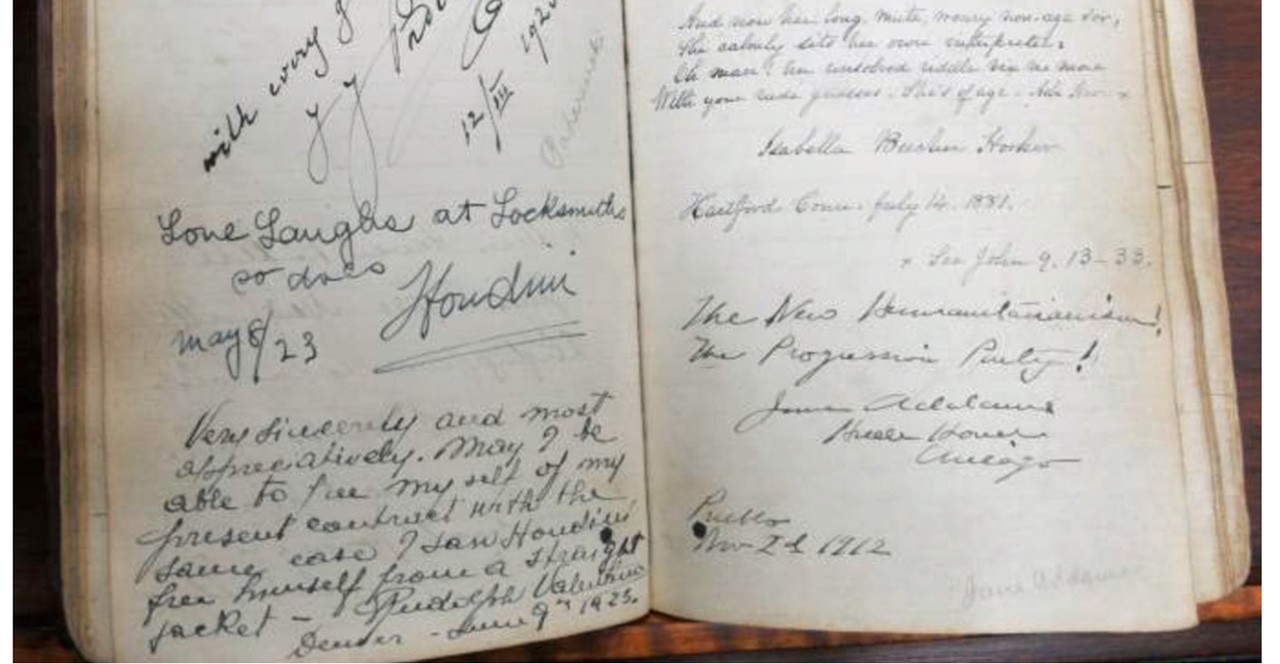 with every g
J J
12/III 192
Paderewski
Love Laughs at Locksmiths
so does Houdini
May 8/23
Very sincerely and most
appreciatively. May I be
able to free my self of my
present contract with the
same ease I saw Houdini
free himself from a straight
jacket – Rudolph Valentino
Denver – June 9th 1923.
And now her long, mute, weary non-age o'er,
She calmly sits her own interpreter:
Oh man! her unsolved riddle vex no more
With your rude guesses. She's of age. Ask Her. x
Isabella Beecher Hooker
Hartford Conn. July 14. 1881.
x See John 9. 13–33.
The New Humanitarianism!
The Progressive Party!
Jane Addams
Hull House
Chicago
Pueblo
Nov 2d 1912
Jane Addams